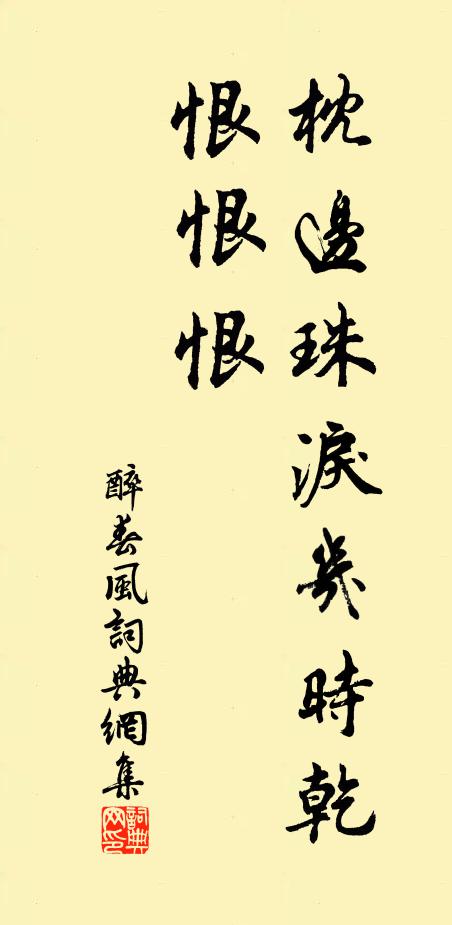 枕邊珠淚幾時乾
恨恨恨
醉春風詞典網集
詞典
网印